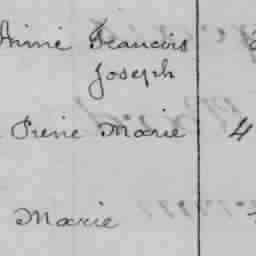 Aimé Francois
Joseph
Irène Marie 4
Marie